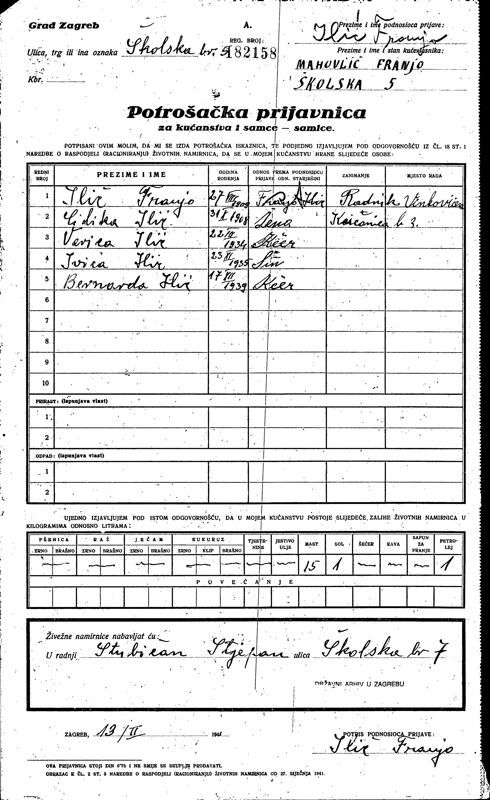 Grad Zagreb
A.
Prezime i ime podnosioca prijave:
Ilić Franjo
Ulica, trg ili ina oznaka Školska br. 5
REG. BROJ:
182158
Prezime i ime i stan kućevlasnika:
MAHOVLIĆ FRANJO
ŠKOLSKA 5
Kbr.
Potrošačka prijavnica
za kućanstva i samce — samice.
POTPISANI OVIM MOLIM, DA MI SE IZDA POTROŠAČKA ISKAZNICA, TE PODJEDNO IZJAVLJUJEM POD ODGOVORNOŠĆU IZ ČL. 18 ST. 1
NAREDBE O RASPODJELI (RACIONIRANJU) ŽIVOTNIH NAMIRNICA, DA SE U MOJEM KUĆANSTVU HRANE SLIJEDEĆE OSOBE:
REDNI BROJ PREZIME I IME GODINA ROĐENJA ODNOS PREMA PODNOSIOCU PRIJAVE ODN. STARJEŠINI ZANIMANJE MJESTO RADA
1 Ilić Franjo 27 Franjo Ilić Radnik
2 Ilić 31 1908 Žena
3 Verica Ilić 22 1934 Kćer
4 Ivica Ilić 23 1935 Sin
5 Bernarda Ilić 17 1939 Kćer
6
7
8
9
10
PRIRAST: (ispunjava vlast)
1
2
ODPAD: (ispunjava vlast)
1
2
UJEDNO IZJAVLJUJEM POD ISTOM ODGOVORNOŠĆU, DA U MOJEM KUĆANSTVU POSTOJE SLIJEDEĆE ZALIHE ŽIVOTNIH NAMIRNICA U
KILOGRAMIMA ODNOSNO LITRAMA:
PŠENICA RAŽ JEČAM KUKURUZ TJESTENINE JESTIVO ULJE MAST SOL ŠEĆER KAVA SAPUN ZA PRANJE PETROLEJ
ZRNO BRAŠNO ZRNO BRAŠNO ZRNO BRAŠNO ZRNO KLIP BRAŠNO
— — — — — — — — — — — 15 1 — — — 1
POVEĆANJE
Živežne namirnice nabavljat ću:
U radnji Stubičan Stjepan ulica Školska br 7
DRŽAVNI ARHIV U ZAGREBU
ZAGREB, 13/II 194
POTPIS PODNOSIOCA PRIJAVE:
Ilić Franjo
OVA PRIJAVNICA STOJI DIN 0·75 I NE SMIJE SE SKUPLJE PRODAVATI.
OBRAZAC K ČL. 2 ST. 3 NAREDBE O RASPODJELI (RACIONIRANJU) ŽIVOTNIH NAMIRNICA OD 27. SIJEČNJA 1941.